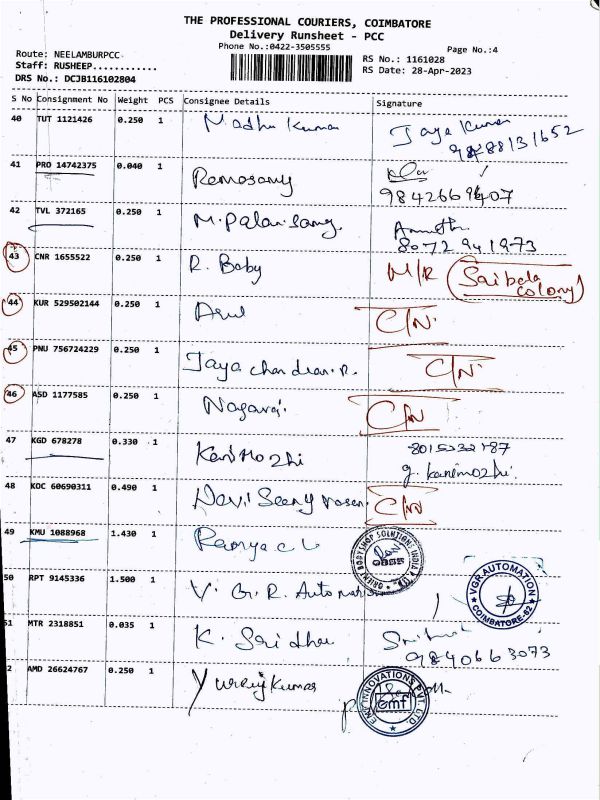 THE PROFESSIONAL COURIERS, COIMBATORE
Delivery Runsheet - PCC
Phone No.:0422-3505555
Page No.:4
Route: NEELAMBURPCC
Staff: RUSHEEP............
DRS No.: DCJB116102804
RS No.: 1161028
RS Date: 28-Apr-2023
S No Consignment No Weight PCS Consignee Details Signature
40 TUT 1121426 0.250 1 Madhu Kumar Jaya Kumar
41 PRO 14742375 0.040 1 Ramasamy
42 TVL 372165 0.250 1 M. Palanisamy
8072941973
43 CNR 1655522 0.250 1 R. Baby M/R Saibaba colony
44 KUR 529502144 0.250 1 Arul C/N.
45 PNU 756724229 0.250 1 Jaya chandran. R. C/N.
46 ASD 1177585 0.250 1 Nagaraj. C/N
47 KGD 678278 0.330 1 Kanimozhi
g. kanimozhi.
48 KOC 60690311 0.490 1 C/N
49 KMU 1088968 1.430 1 Ramya C
ORIENT BODYSHOP SOLUTIONS INDIA
50 RPT 9145336 1.500 1 V. G. R. Automation
VGR AUTOMATION
COIMBATORE-62
51 MTR 2318851 0.035 1 K. Sridhar
9840663073
2 AMD 26624767 0.250 1 Yuvraj Kumar
EMF INNOVATIONS PVT. LTD.
emf